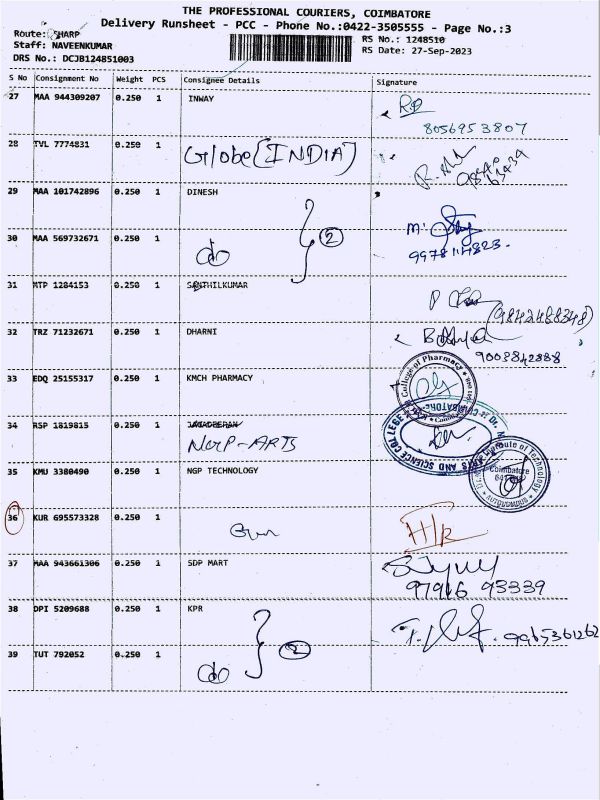 THE PROFESSIONAL COURIERS, COIMBATORE
Delivery Runsheet - PCC - Phone No.:0422-3505555 - Page No.:3
Route: SHARP
RS No.: 1248510
Staff: NAVEENKUMAR
RS Date: 27-Sep-2023
DRS No.: DCJB124851003
S No Consignment No Weight PCS Consignee Details Signature
27 MAA 944309207 0.250 1 INWAY
8056953807
28 TVL 7774831 0.250 1 Globe (INDIA)
29 MAA 101742896 0.250 1 DINESH
30 MAA 569732671 0.250 1 do 2
31 MTP 1284153 0.250 1 SENTHILKUMAR
(9842488348)
32 TRZ 71232671 0.250 1 DHARNI
9003842888
33 EDQ 25155317 0.250 1 KMCH PHARMACY
College of Pharmacy
34 RSP 1819815 0.250 1 JAGADHEPAN
NGP-ARTS
ARTS AND SCIENCE COLLEGE
35 KMU 3380490 0.250 1 NGP TECHNOLOGY
Institute of Technology
Coimbatore
AUTONOMOUS
36 KUR 695573328 0.250 1
37 MAA 943661306 0.250 1 SDP MART
97916 93339
38 DPI 5209688 0.250 1 KPR
9965361262
39 TUT 792052 0.250 1 do 2